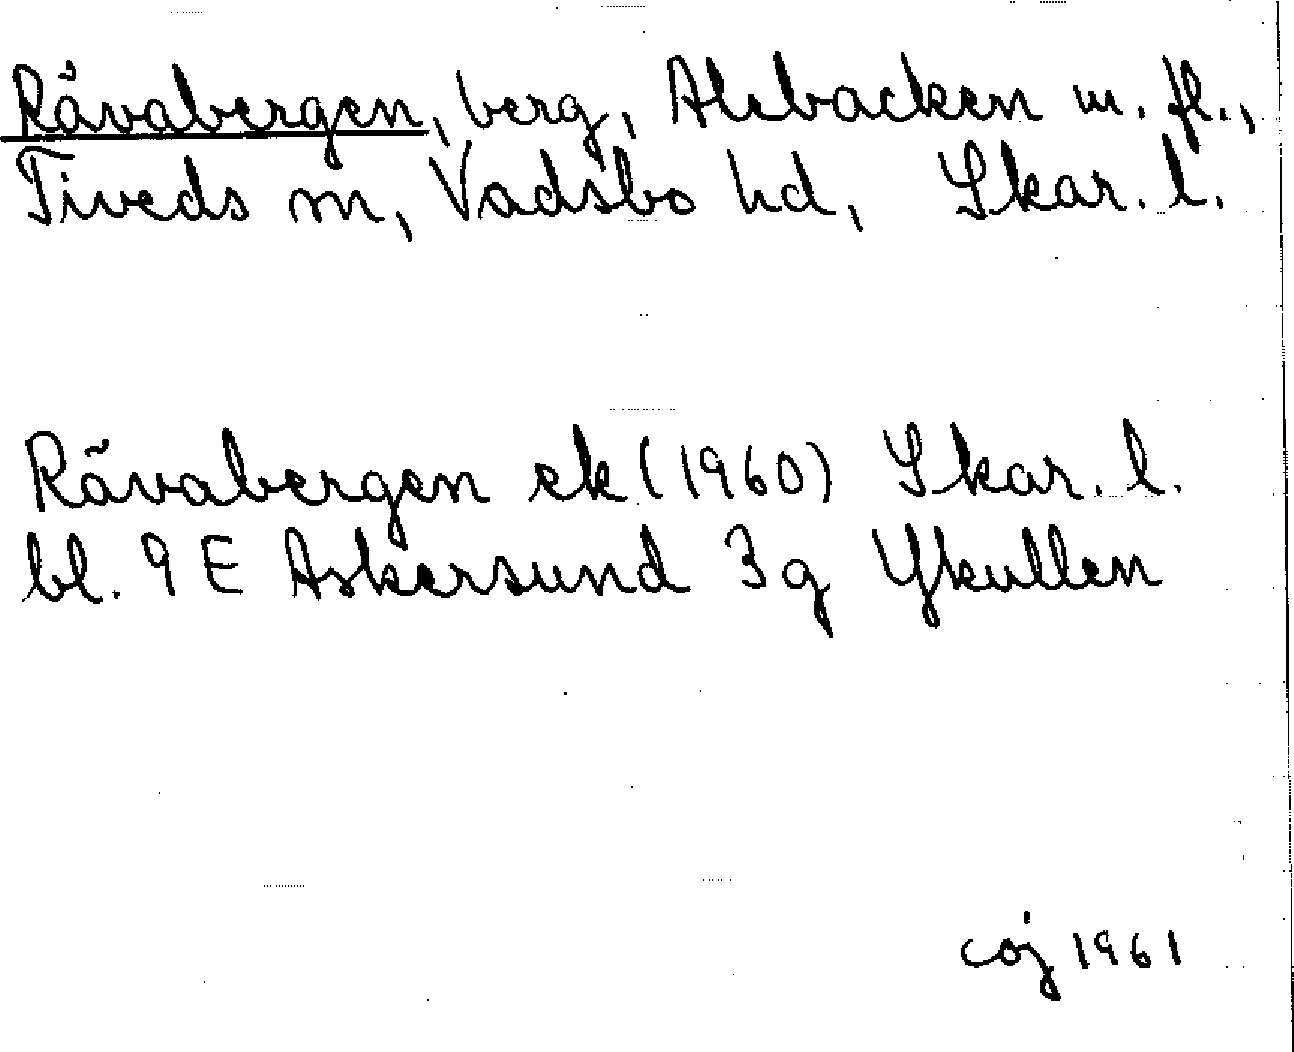 Råvabergen, berg, Alebacken m. fl.,
Tiveds sn, Vadsbo hd, Skar. l.
Råvabergen ek (1960) Skar. l.
bl. 9 E Askersund 3 g Ykullen
coj 1961